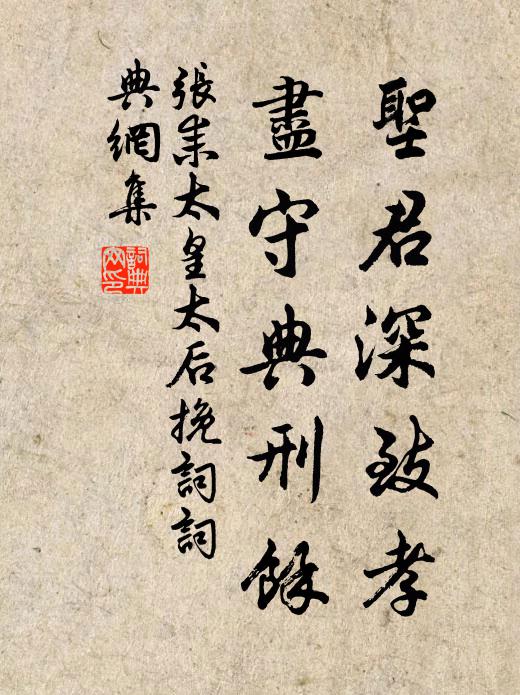 聖君深致孝
盡守典刑餘
張耒太皇太后挽詞詞
典網集
詞典網印